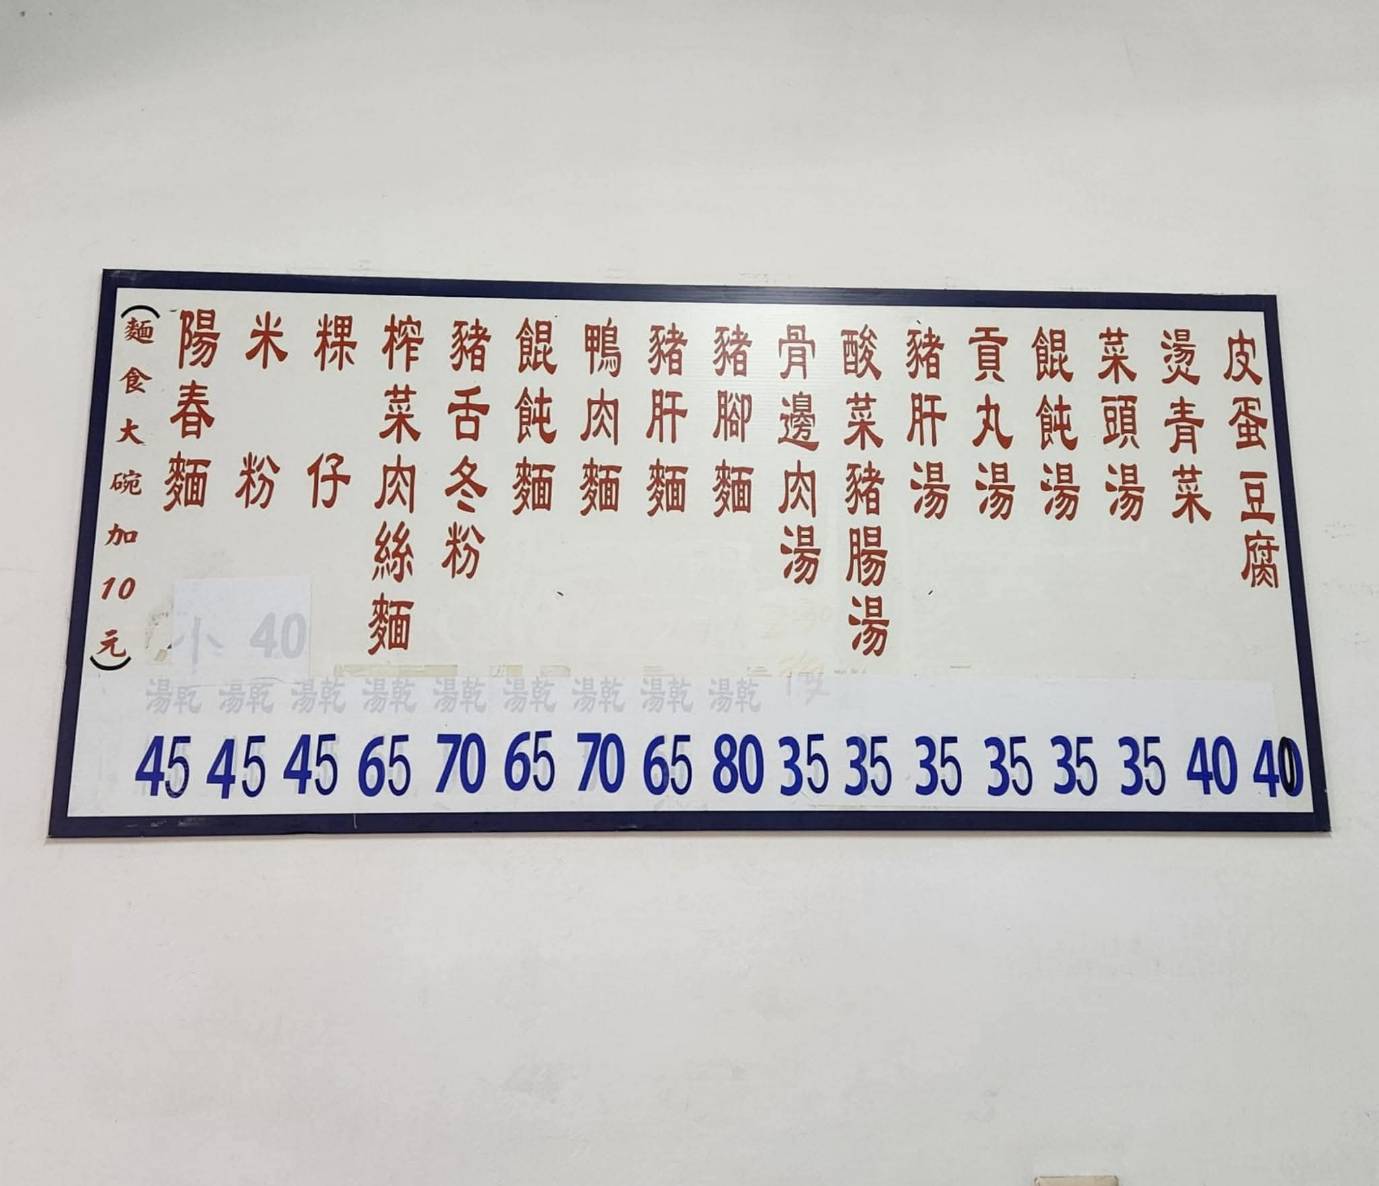 （麵食大碗加10元）
陽春麵
米粉
粿仔
榨菜肉絲麵
豬舌冬粉
餛飩麵
鴨肉麵
豬肝麵
豬腳麵
骨邊肉湯
酸菜豬腸湯
豬肝湯
貢丸湯
餛飩湯
菜頭湯
燙青菜
皮蛋豆腐
小 40
湯乾 湯乾 湯乾 湯乾 湯乾 湯乾 湯乾 湯乾 湯乾
45 45 45 65 70 65 70 65 80 35 35 35 35 35 35 40 40